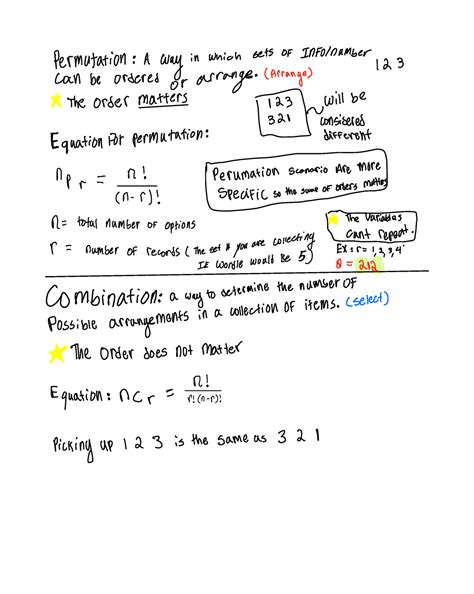 Permutation: A way in which sets of Info/number
can be ordered or arrange. (Arrange)
1 2 3
The order matters
1 2 3
3 2 1
will be
considered
different
Equation for permutation:
nPr = n!
(n-r)!
Perumation scenario are more
specific so the same of orders matters
n= total number of options
r = number of records (The set if you are collecting
IE wordle would be 5)
The variables
cant repeat.
Ex: r= 1, 2, 3, 4
= 212
Combination: a way to determine the number of
possible arrangements in a collection of items. (select)
The Order does not matter
Equation: nCr = n!
r!(n-r)!
Picking up 1 2 3 is the same as 3 2 1